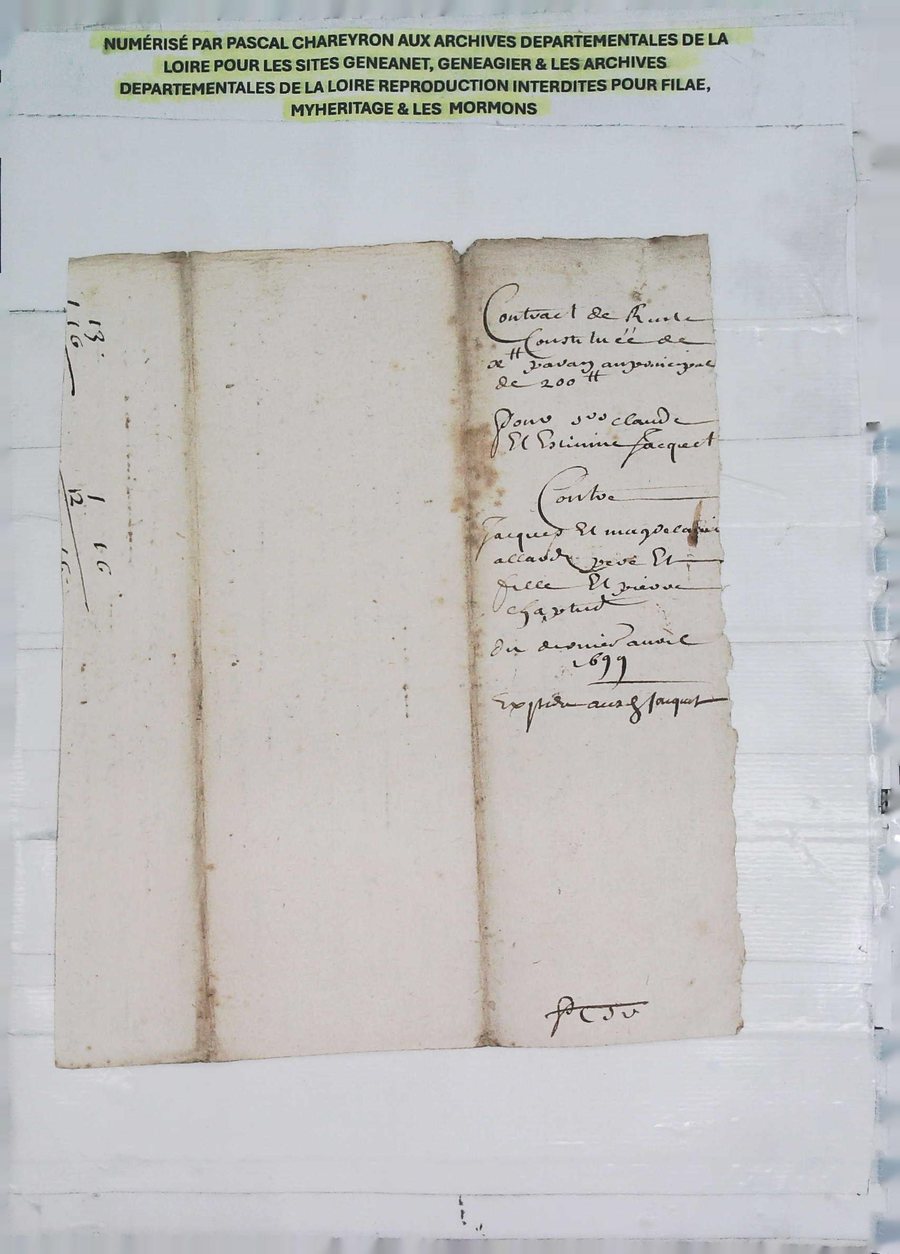 NUMÉRISÉ PAR PASCAL CHAREYRON AUX ARCHIVES DEPARTEMENTALES DE LA
LOIRE POUR LES SITES GENEANET, GENEAGIER & LES ARCHIVES
DEPARTEMENTALES DE LA LOIRE REPRODUCTION INTERDITES POUR FILAE,
MYHERITAGE & LES MORMONS
Contract de Rente
Constituée de
x tt par an au principal
de 200 tt
Pour Claude
Et Estienne Jacquet
Contre
Jacques Et magdelaine
allard pere Et
fille Et pierre
chaptard
du dernier avril
1699
Expedié Jacquet
13
1 16
1 16
12